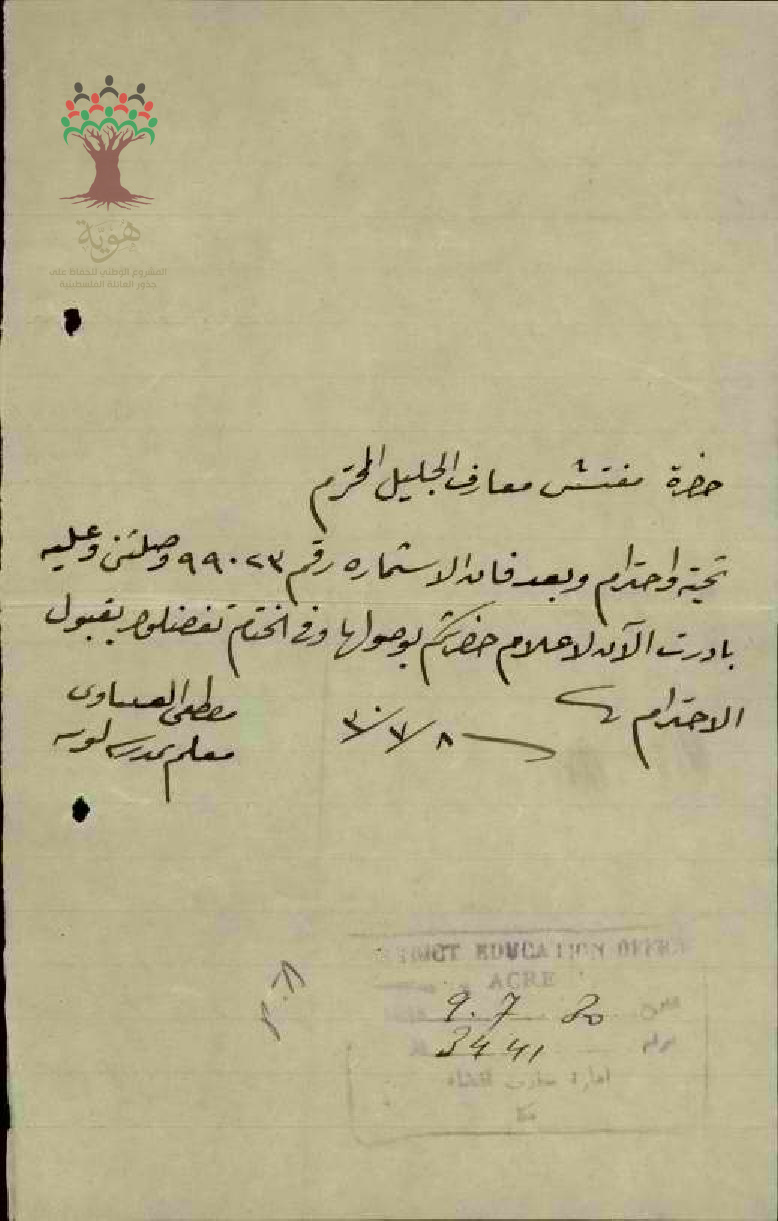 هوية
المشروع الوطني للحفاظ على
جذور العائلة الفلسطينية
حضرة مفتش معارف الجليل المحترم
تحية واحترام وبعد فان الاستماره رقم ٩٩٠٢٣ وصلتني وعليه
بادرت الآن لاعلام حضرتكم بوصولها وفي الختام تفضلوا بقبول
الاحترام
مصطفى العيساوي
٨/٧/٣٠
معلم مدرسة لوبيه
DISTRICT EDUCATION OFFICE
ACRE
التاريخ 9. 7 30
الرقم 3441
ادارة معارف القضاء
عكا